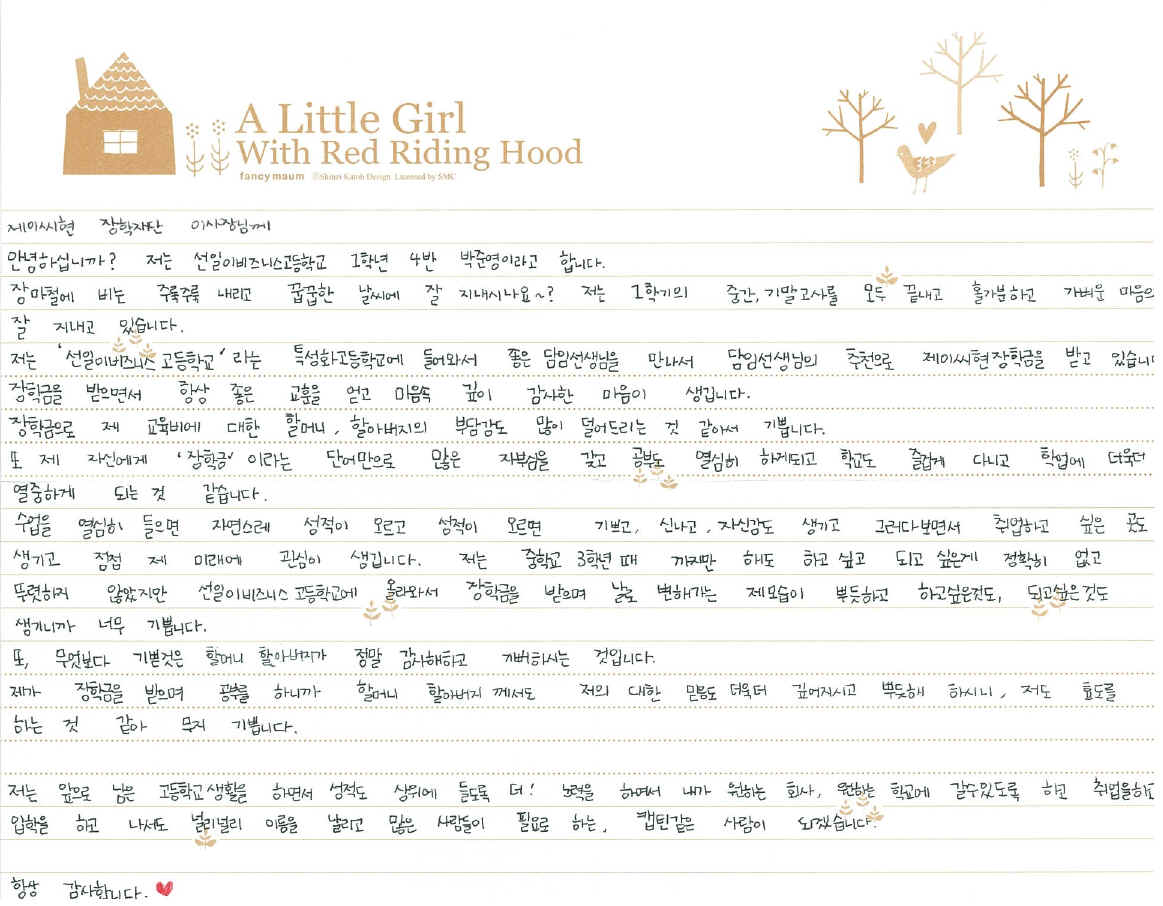 A Little Girl
With Red Riding Hood
fancy maum ©Shinzi Katoh Design Licensed by SMC
제이씨현 장학재단 이사장님께
안녕하십니까? 저는 선일이비즈니스고등학교 1학년 4반 박준영이라고 합니다.
장마철에 비는 주룩주룩 내리고 꿉꿉한 날씨에 잘 지내시나요~? 저는 1학기의 중간, 기말고사를 모두 끝내고 홀가분하고 가벼운 마음으
잘 지내고 있습니다.
저는 '선일이비즈니스 고등학교' 라는 특성화고등학교에 들어와서 좋은 담임선생님을 만나서 담임선생님의 추천으로 제이씨현장학금을 받고 있습니
장학금을 받으면서 항상 좋은 교훈을 얻고 마음속 깊이 감사한 마음이 생깁니다.
장학금으로 제 교육비에 대한 할머니, 할아버지의 부담감도 많이 덜어드리는 것 같아서 기쁩니다.
또 제 자신에게 '장학금' 이라는 단어만으로 많은 자부심을 갖고 공부도 열심히 하게되고 학교도 즐겁게 다니고 학업에 더욱더
열중하게 되는 것 같습니다.
수업을 열심히 들으면 자연스레 성적이 오르고 성적이 오르면 기쁘고, 신나고, 자신감도 생기고 그러다보면서 취업하고 싶은 곳도
생기고 점점 제 미래에 관심이 생깁니다. 저는 중학교 3학년 때 까지만 해도 하고 싶고 되고 싶은게 정확히 없고
뚜렷하지 않았지만 선일이비즈니스 고등학교에 올라와서 장학금을 받으며 날로 변해가는 제모습이 뿌듯하고 하고싶은것도, 되고싶은것도
생기니까 너무 기쁩니다.
또, 무엇보다 기쁜것은 할머니 할아버지가 정말 감사해하고 기뻐하시는 것입니다.
제가 장학금을 받으며 공부를 하니까 할머니 할아버지 께서도 저의 대한 믿음도 더욱더 깊어지시고 뿌듯해 하시니, 저도 효도를
하는 것 같아 무지 기쁩니다.
저는 앞으로 남은 고등학교생활을 하면서 성적도 상위에 들도록 더! 노력을 하여서 내가 원하는 회사, 원하는 학교에 갈수있도록 하고 취업을하고
입학을 하고 나서도 널리널리 이름을 날리고 많은 사람들이 필요로 하는, 캡틴같은 사람이 되겠습니다.
항상 감사합니다.